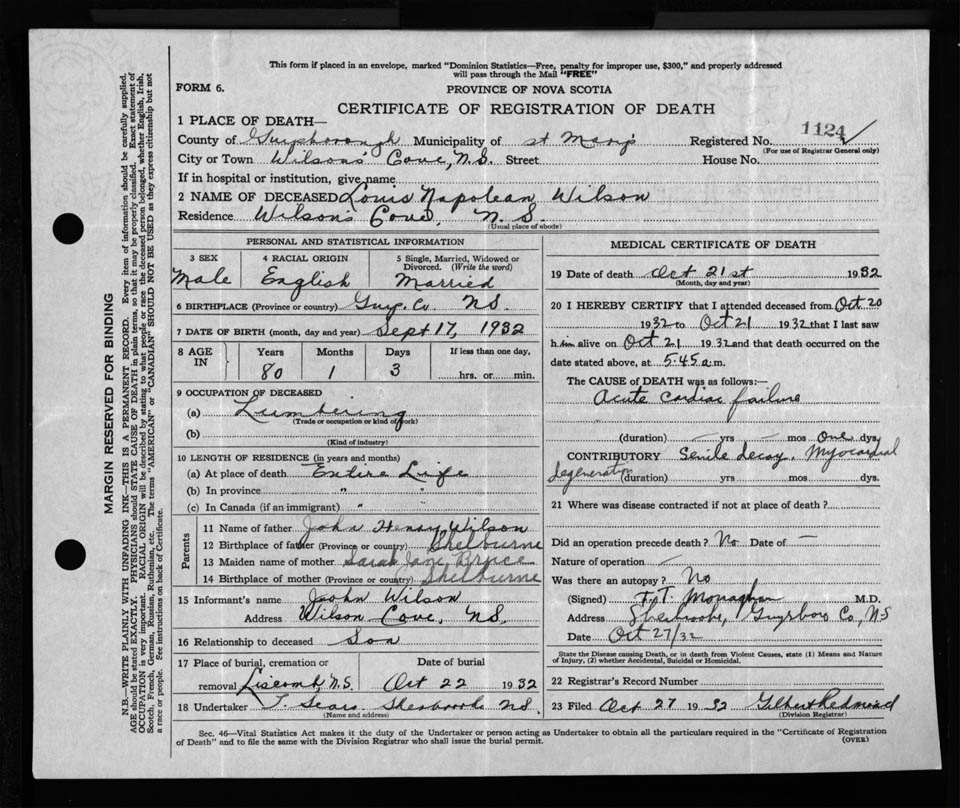 This form if placed in an envelope, marked "Dominion Statistics—Free, penalty for improper use, $300," and properly addressed
will pass through the Mail "FREE"
FORM 6.
PROVINCE OF NOVA SCOTIA
CERTIFICATE OF REGISTRATION OF DEATH
1 PLACE OF DEATH—
County of Guysborough Municipality of St Mary's Registered No. 1124
(For use of Registrar General only)
City or Town Wilson's Cove, N.S. Street House No.
If in hospital or institution, give name
2 NAME OF DECEASED Louis Napolean Wilson
Residence Wilson's Cove, N.S.
(Usual place of abode)
PERSONAL AND STATISTICAL INFORMATION
3 SEX 4 RACIAL ORIGIN 5 Single, Married, Widowed or
Divorced. (Write the word)
Male English Married
6 BIRTHPLACE (Province or country) Guy. Co. NS.
7 DATE OF BIRTH (month, day and year) Sept 17, 1932
8 AGE IN Years Months Days If less than one day,
80 1 3 hrs. or min.
9 OCCUPATION OF DECEASED
(a) Lumbering
(Trade or occupation or kind of work)
(b)
(Kind of industry)
10 LENGTH OF RESIDENCE (in years and months)
(a) At place of death Entire Life
(b) In province " "
(c) In Canada (if an immigrant) " "
Parents
11 Name of father John Henry Wilson
12 Birthplace of father (Province or country) Shelburne
13 Maiden name of mother Sarah Jane Bruce
14 Birthplace of mother (Province or country) Shelburne
15 Informant's name John Wilson
Address Wilson Cove, NS.
16 Relationship to deceased Son
17 Place of burial, cremation or Date of burial
removal Liscomb, N.S. Oct 22 1932
18 Undertaker T. Sears Sherbrooke NS.
(Name and address)
MEDICAL CERTIFICATE OF DEATH
19 Date of death Oct 21st 1932
(Month, day and year)
20 I HEREBY CERTIFY that I attended deceased from Oct 20
1932 to Oct 21 1932 that I last saw
him alive on Oct 21 1932 and that death occurred on the
date stated above, at 5.45 a.m.
The CAUSE of DEATH was as follows:—
Acute cardiac failure
(duration) yrs mos one dys
CONTRIBUTORY Senile decay. Myocardial
degeneration (duration) yrs. mos. dys.
21 Where was disease contracted if not at place of death?
Did an operation precede death? No Date of —
Nature of operation —
Was there an autopsy? No
(Signed) F.T. Monaghan M.D.
Address Sherbrooke, Guysboro Co, NS
Date Oct 27/32
State the Disease causing Death, or in death from Violent Causes, state (1) Means and Nature
of Injury, (2) whether Accidental, Suicidal or Homicidal.
22 Registrar's Record Number
23 Filed Oct 27 1932 Gilbert Redmond
(Division Registrar)
Sec. 46—Vital Statistics Act makes it the duty of the Undertaker or person acting as Undertaker to obtain all the particulars required in the "Certificate of Registration
of Death" and to file the same with the Division Registrar who shall issue the burial permit.
(OVER)
MARGIN RESERVED FOR BINDING
N.B.—WRITE PLAINLY WITH UNFADING INK—THIS IS A PERMANENT RECORD. Every item of information should be carefully supplied.
AGE should be stated EXACTLY. PHYSICIANS should STATE CAUSE OF DEATH in plain terms, so that it may be properly classified. Exact statement of
OCCUPATION is very important. RACIAL ORIGIN will be described by stating to what people or race the deceased person belonged, whether English, Irish,
Scotch, French, German, Russian, Ruthenian, etc. The terms "AMERICAN" or "CANADIAN" SHOULD NOT BE USED as they express citizenship but not
a race or people. See instructions on back of Certificate.